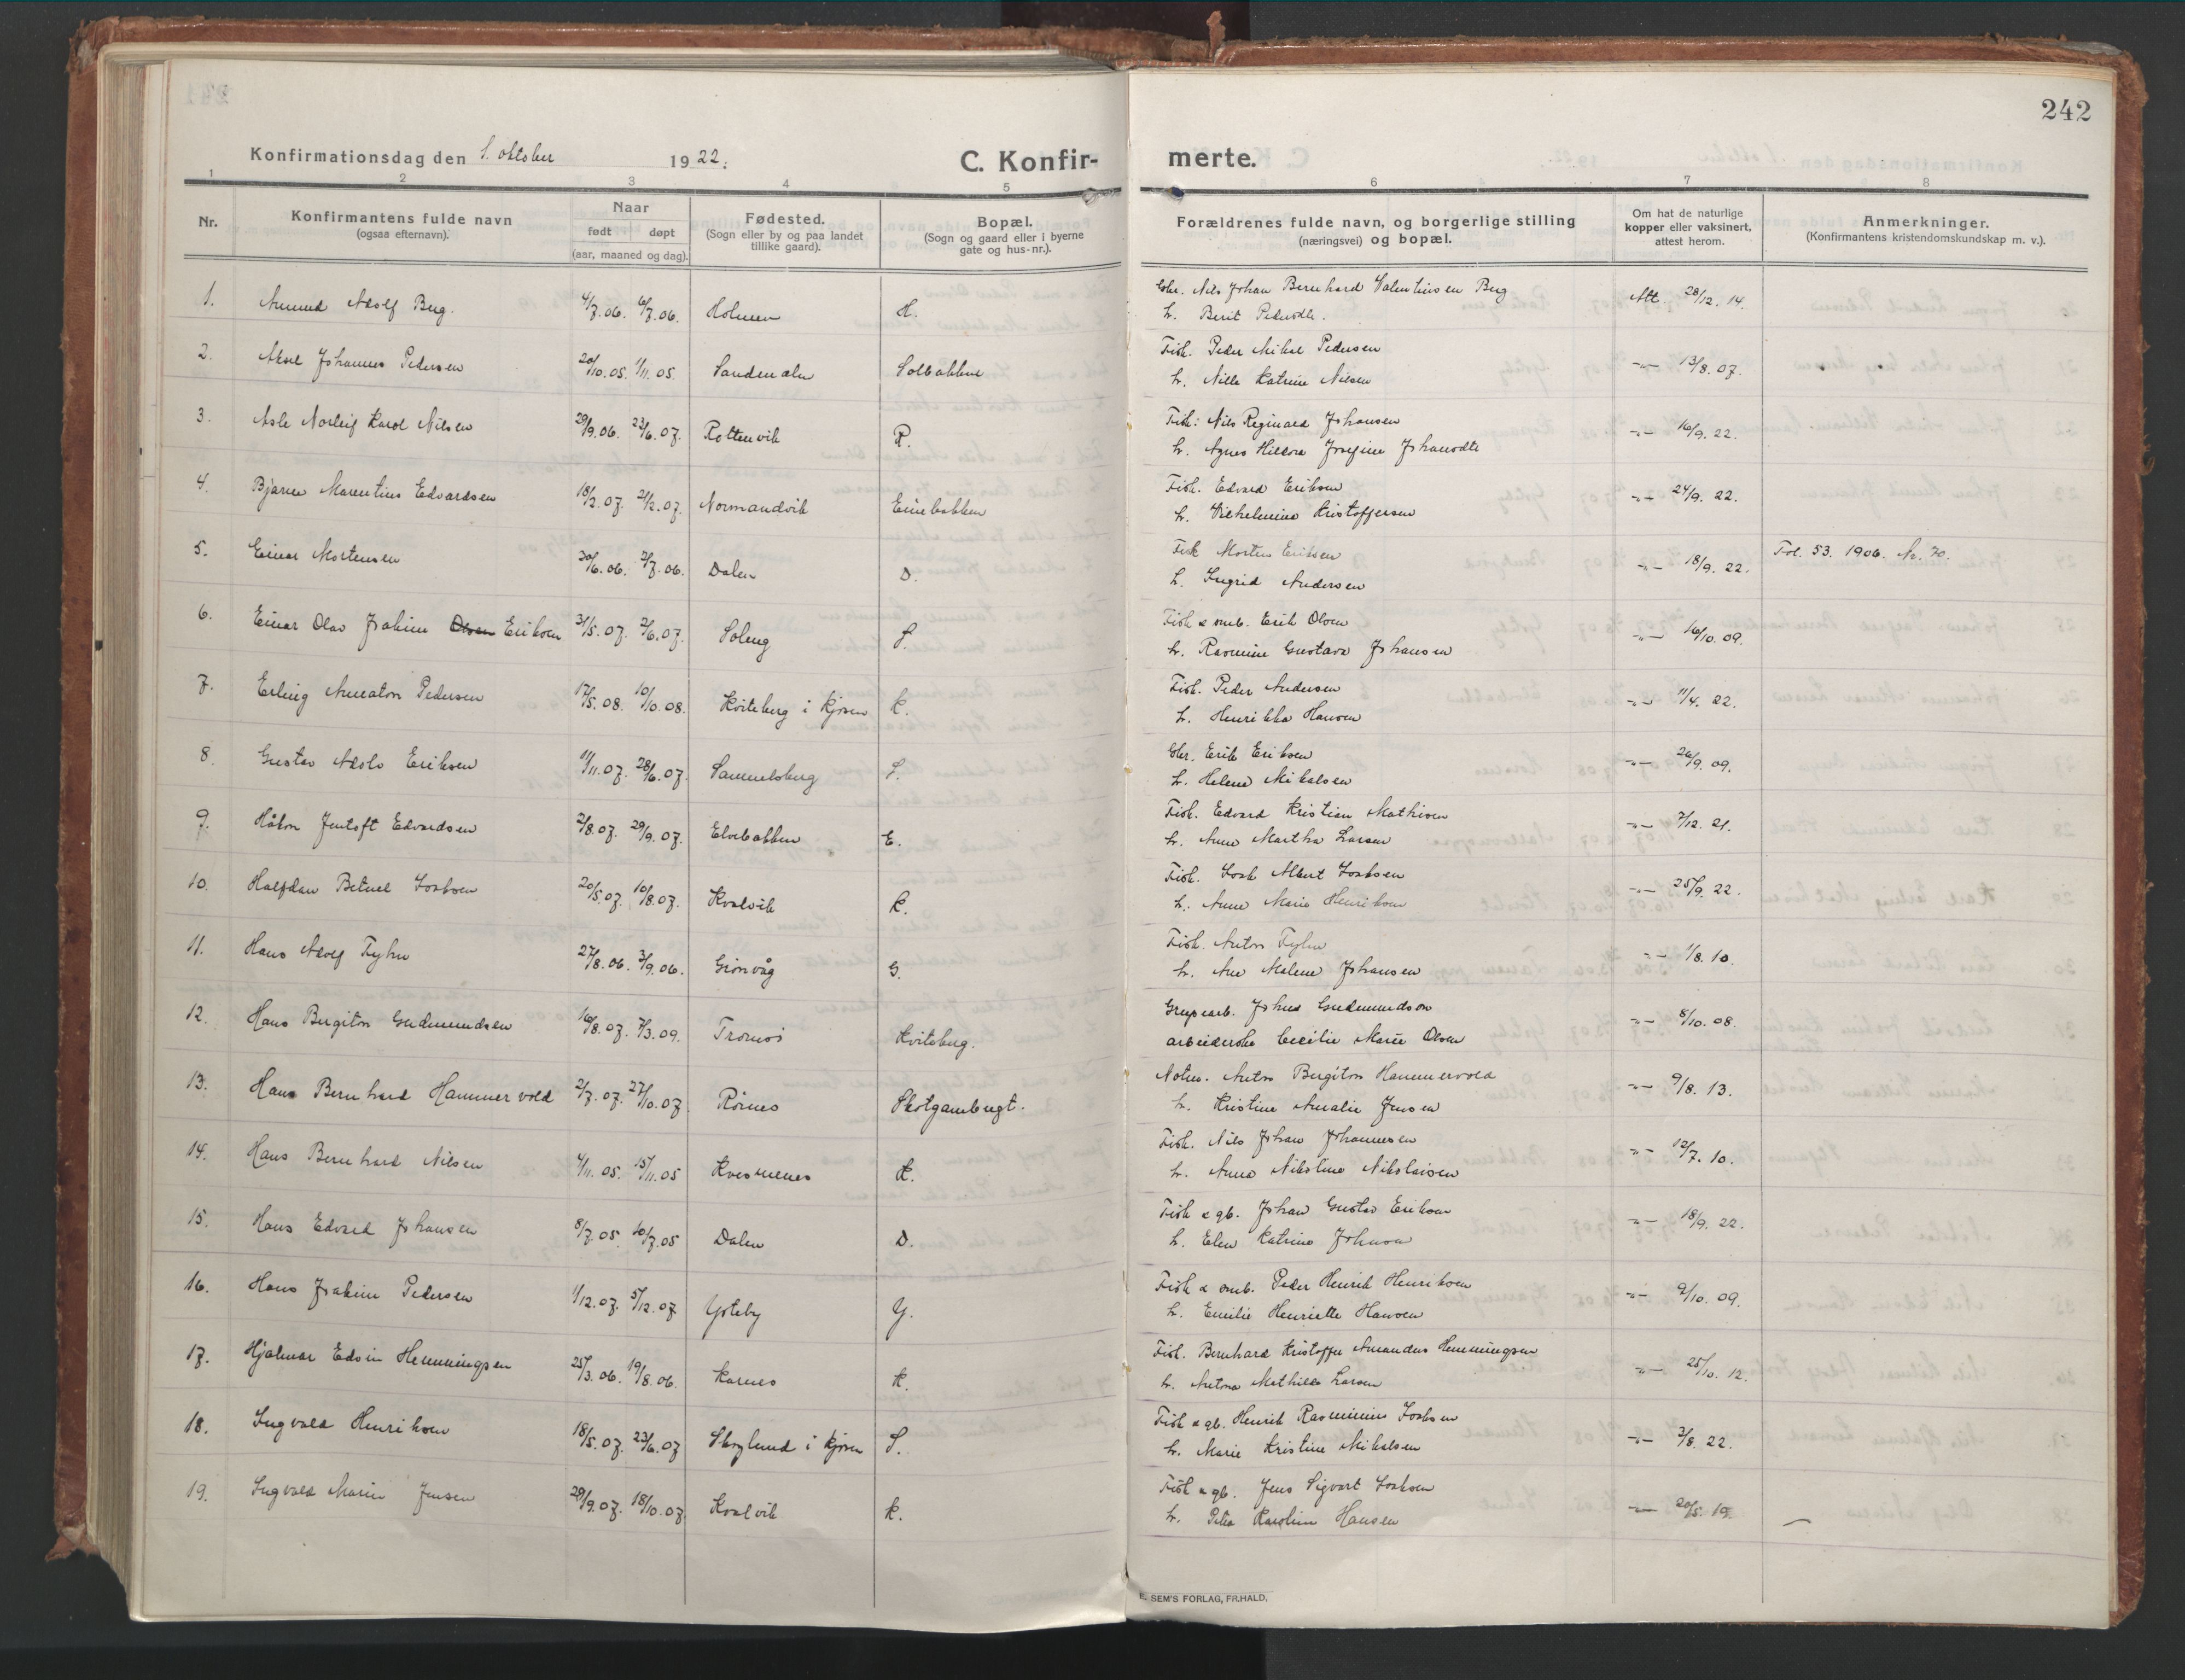 242
Konfirmationsdag den 1. oktober 1922.
C. Konfir-
merte.
1 2 3 4 5 6 7 8
Nr.
Konfirmantens fulde navn
(ogsaa efternavn).
Naar
født døpt
(aar, maaned og dag).
Fødested.
(Sogn eller by og paa landet
tillike gaard).
Bopæl.
(Sogn og gaard eller i byerne
gate og hus-nr.).
Forældrenes fulde navn, og borgerlige stilling
(næringsvei) og bopæl.
Om hat de naturlige
kopper eller vaksinert,
attest herom.
Anmerkninger.
(Konfirmantens kristendomskundskap m. v.).
1. Amund Adolf Berg. 4/7.06. 6/7.06. Holmen H. Nils Johan Bernhard Valentinsen Berg Att. 28/12. 14.
h. Berit Pedersdtr.
2. Aksel Johannes Pedersen 20/10.05. 1/11.05. Solbakken Fisk. Peder Mikal Pedersen -"- 13/8. 07.
h. Nille Katrine Nilsen
3. Asle Norleif Karol Nilsen 29/9.06. 23/6.07. Rottenvik R. Fisk. Nils Reginard Johansen -"- 16/9. 22.
h. Agnes Hildora Josefine Johansdtr
4. Bjarne Marentius Edvardsen 18/2.07. 21/2.07. Normandvik Einebakken Fisk. Edvard Eriksen -"- 24/9. 22.
h. Vilhelmine Kristoffersen
5. Einar Mortensen 30/6.06. 2/7.06. Dalen D. Fisk Morten Eriksen -"- 18/9. 22. Fol. 53. 1906. Nr. 70.
h. Ingrid Andersen
6. Einar Olav Joakim Olsen Eriksen 31/5.07. 2/6.07. Soleng S. Fisk & smb. Erik Olsen -"- 16/10. 09.
h. Rasmine Gustava Johansen
7. Erling Amaton Pedersen 17/5.08. 10/10.08. Kviteberg i Kjosen K. Fisk. Peder Andersen -"- 11/4. 22.
h. Henrikka Hansen
8. Gustav Adolv Eriksen 11/11.07. 28/6.07. Samuelsberg S. Erik Eriksen -"- 26/9. 09.
h. Helene Mikalsen
9. Håkon Jentoft Edvardsen 2/8.07. 29/9.07. Elvebakken E. Fisk. Edvard Kristian Mathisen -"- 7/12. 21.
h. Anne Martha Larsen
10. Halfdan Betuel Isaksen 20/5.07. 10/8.07. Kvalvik K. Fisk. Isak Albert Isaksen -"- 25/9. 22.
h. Anne Marie Henriksen
11. Hans Adolf Fyhn 27/8.06. 3/9.06. Grønvåg G. Fisk. Anton Fyhn -"- 1/8. 10.
h. Ane Malene Johansen
12. Hans Birgiton Gudmundsen 16/8.07. 7/3.09. Tromsø Kviteberg. Grupearb. Johns Gudmundson -"- 8/10. 08.
arbeiderske Cecilie Marie Olsen
13. Hans Bernhard Hammervold 2/7.07. 27/10.07. Rörnes Skotgambugt. Anton Birgiton Hammervold -"- 9/8. 13.
h. Kristine Amalie Jensen
14. Hans Bernhard Nilsen 4/11.05. 15/11.05 Kvesmenes K. Fisk. Nils Johan Johannesen -"- 12/7. 10.
h. Anna Nikoline Nikolaisen
15. Hans Edvard Johansen 8/7.05. 10/7.05 Dalen D. Fisk & gb. Johan Gustav Eriksen -"- 18/9. 22.
h. Elen Katrine Johnsen
16. Hans Joakim Pedersen 1/12.07. 5/12.07 Ysteby Y. Fisk & smb. Peder Henrik Henriksen -"- 9/10. 09.
h. Emilie Henriette Hansen
17. Hjalmar Edvin Henningsen 25/3.06. 19/8.06. Karnes K. Fisk. Bernhard Kristoffer Amandus Henningsen -"- 25/10. 12.
h. Antona Mathilde Larsen
18. Ingvald Henriksen 18/5.07. 23/6.07 Skoglund i Kjosen S. Fisk & gb. Henrik Rasminius Isaksen -"- 2/8. 22.
h. Marie Kristine Mikalsen
19. Ingvald Marin Jensen 29/9.07. 18/10.07 Kvalvik K. Fisk & gb. Jens Sigvart Isaksen -"- 20/5. 19.
h. Petra Karoline Hansen
E. SEM'S FORLAG, FR.HALD.